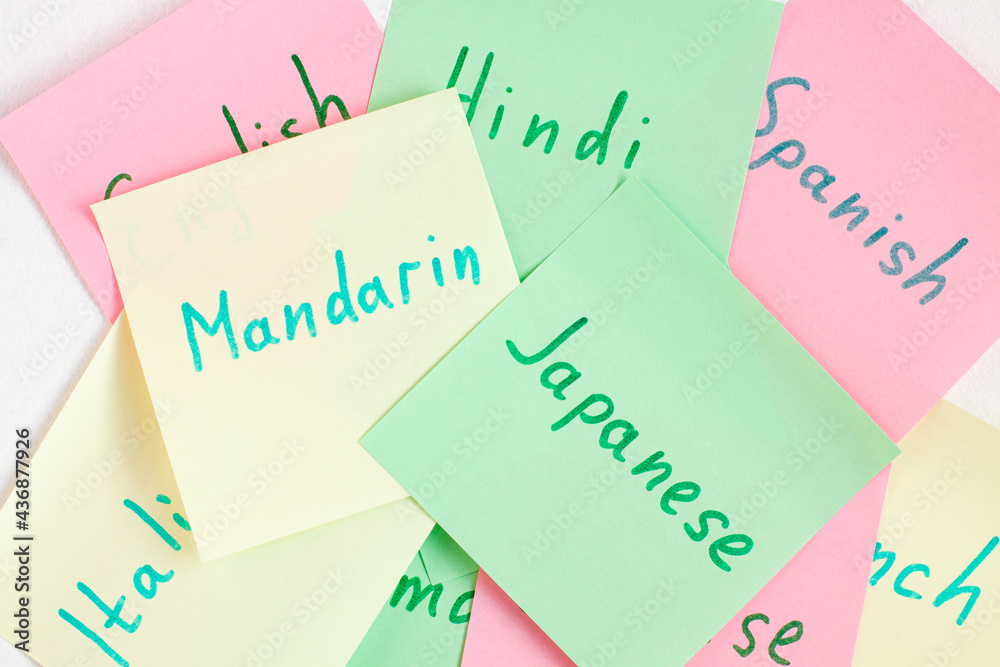 Hindi
Spanish
Mandarin
Japanese
Itali
nch
mo
se
Adobe Stock | #436877926